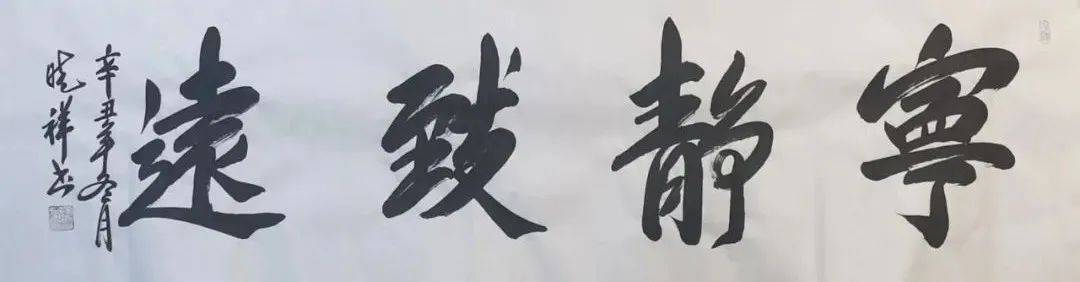 寧靜致遠
辛丑年冬月
晓祥书